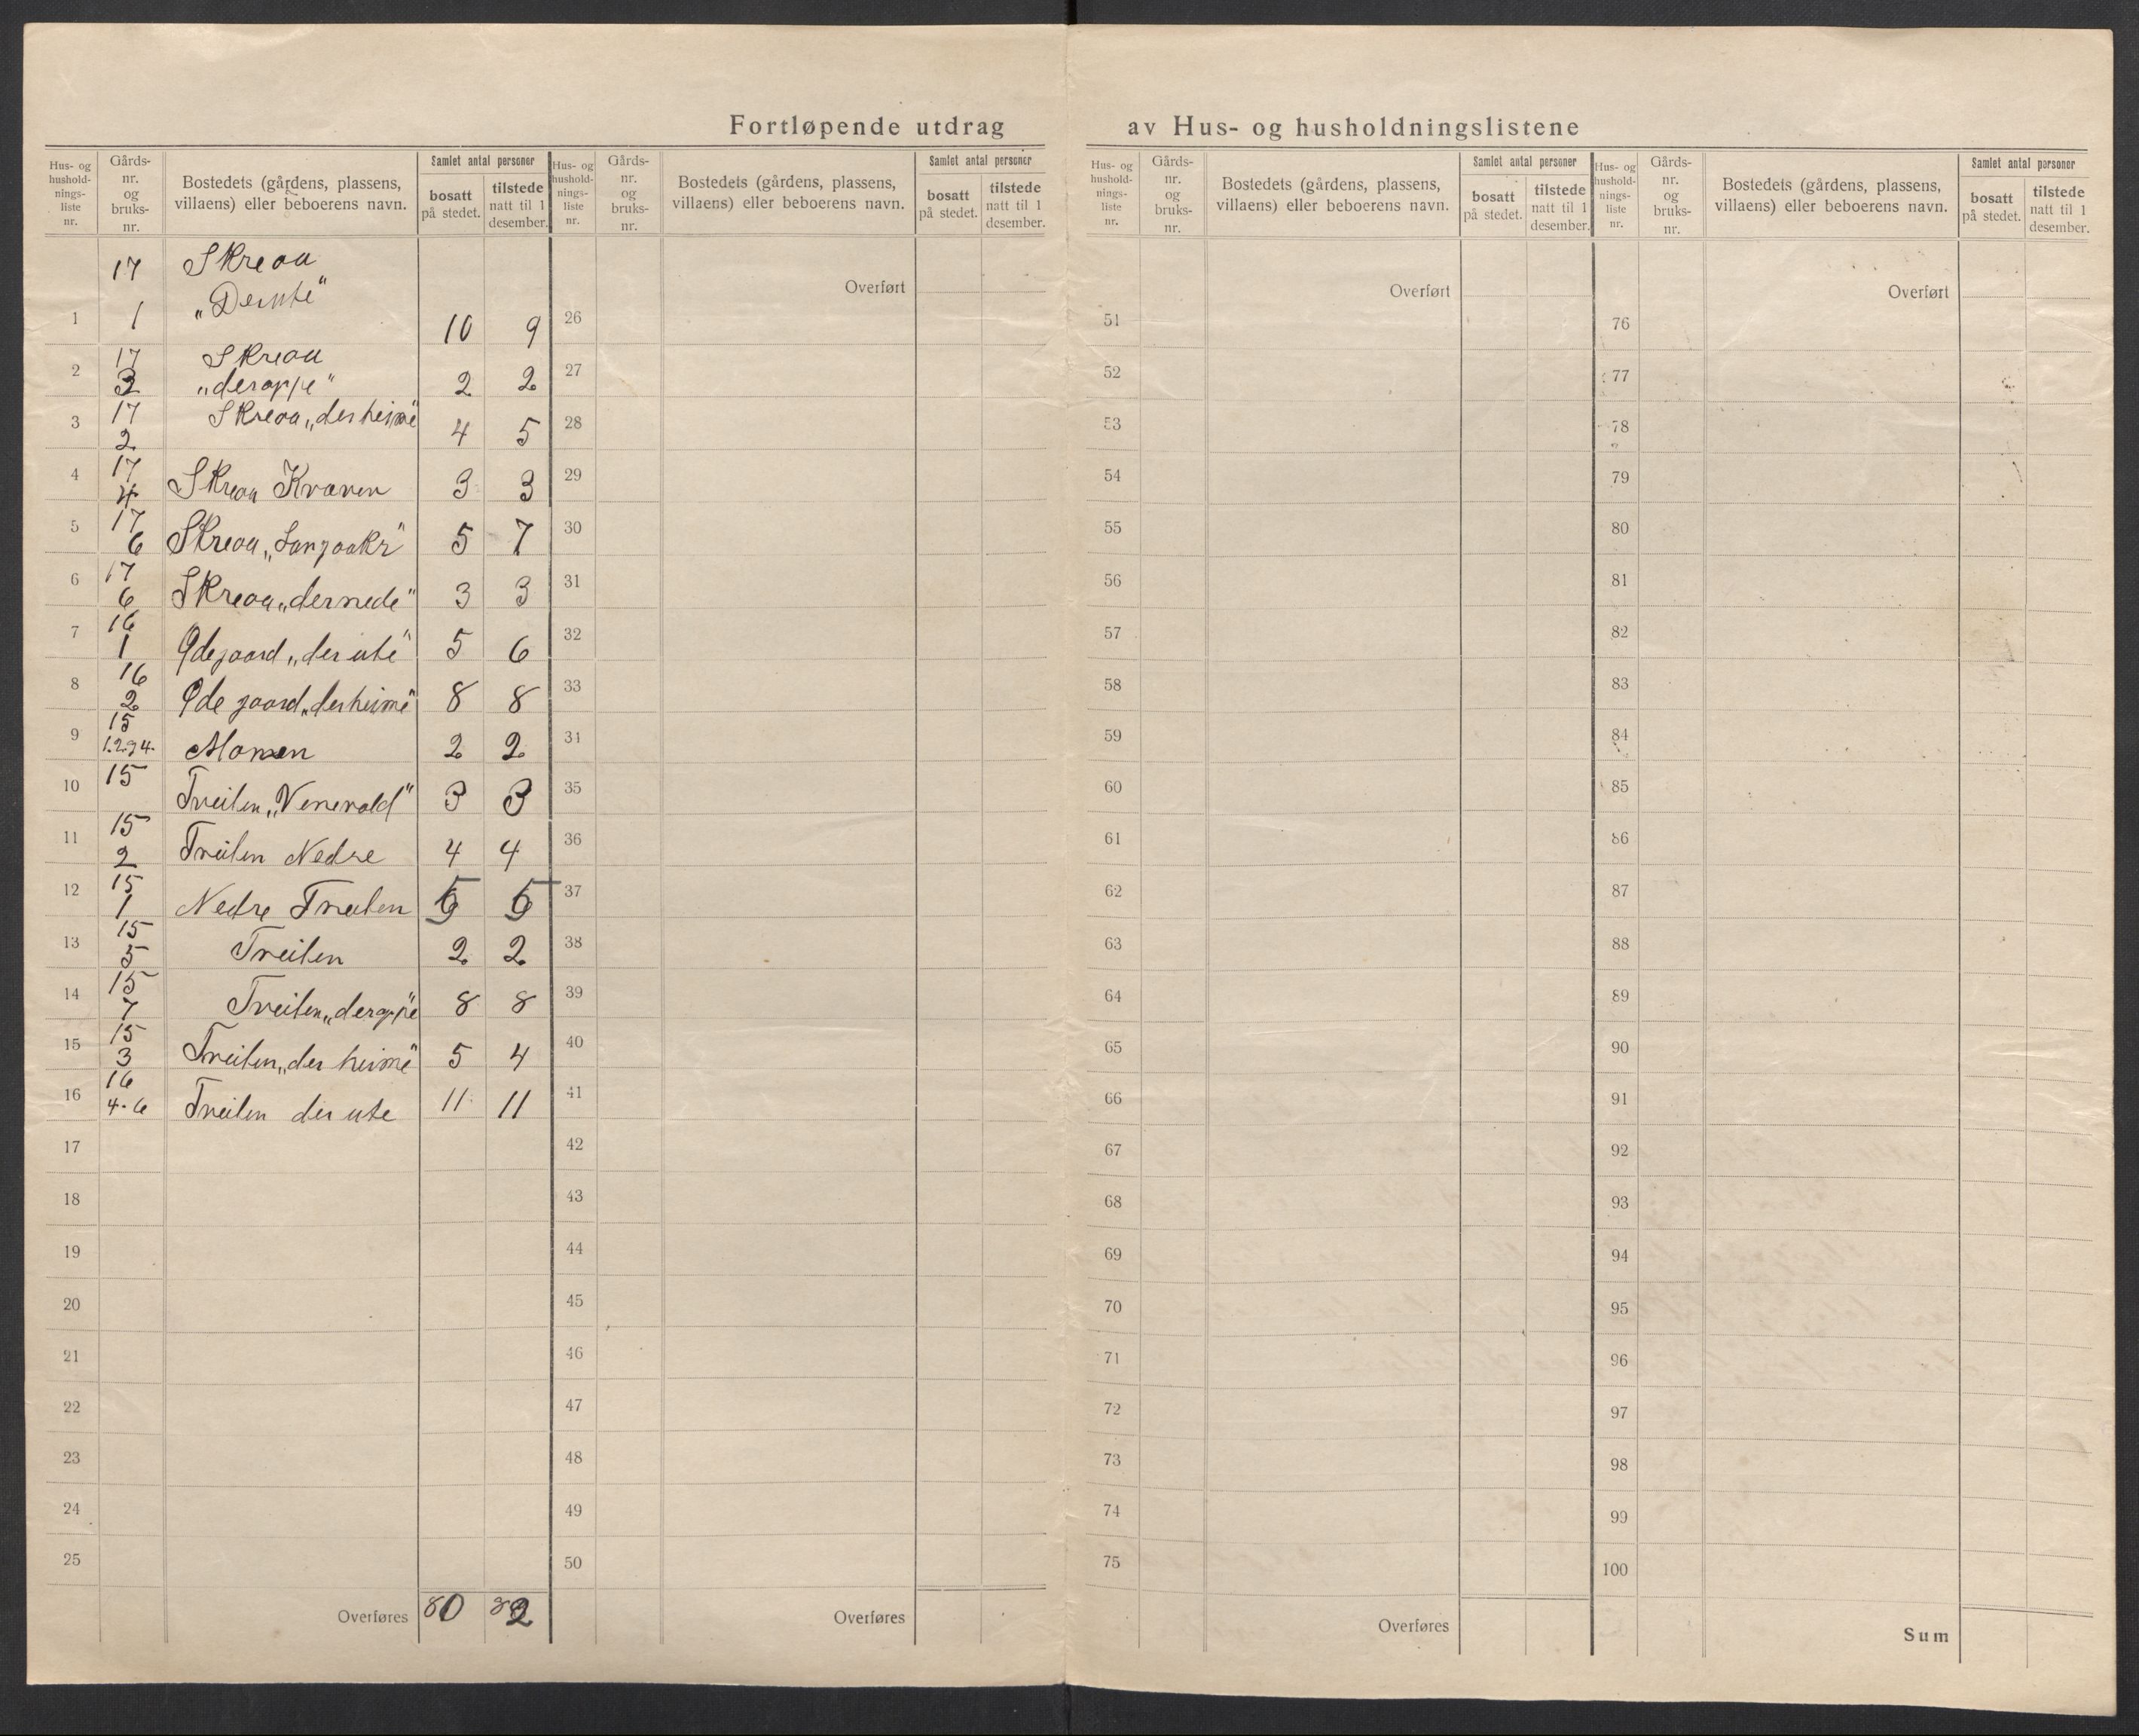 Fortløpende utdrag av Hus- og husholdningslistene
Hus- og husholdningsliste nr. | Gårds- nr. og bruks- nr. | Bostedets (gårdens, plassens, villaens) eller beboerens navn. | Samlet antal personer | bosatt på stedet. | tilstede natt til 1 desember.
Hus- og husholdningsliste nr. | Gårds- nr. og bruks- nr. | Bostedets (gårdens, plassens, villaens) eller beboerens navn. | Samlet antal personer | bosatt på stedet. | tilstede natt til 1 desember.
Hus- og husholdningsliste nr. | Gårds- nr. og bruks- nr. | Bostedets (gårdens, plassens, villaens) eller beboerens navn. | Samlet antal personer | bosatt på stedet. | tilstede natt til 1 desember.
Hus- og husholdningsliste nr. | Gårds- nr. og bruks- nr. | Bostedets (gårdens, plassens, villaens) eller beboerens navn. | Samlet antal personer | bosatt på stedet. | tilstede natt til 1 desember.
1 17 1 Skreaa „Derute" 10 9
2 17 3 Skreaa „deroppe" 2 2
3 17 2 Skreaa „derheime" 4 5
4 17 4 Skreaa Kvaren 3 3
5 17 6 Skreaa „Langaakr" 5 7
6 17 6 Skreaa „dernede" 3 3
7 16 1 Ødegaard „der ute" 5 6
8 16 2 Ødegaard „derheime" 8 8
9 15 1.2.94. Momen 2 2
10 15 Tveiten „Venevold" 3 3
11 15 2 Tveiten Nedre 4 4
12 15 1 Nedre Tveiten 5 5
13 15 5 Tveiten 2 2
14 15 7 Tveiten „deroppe" 8 8
15 15 3 Tveiten „der heime" 5 4
16 16 4-6 Tveiten der ute 11 11
17
18
19
20
21
22
23
24
25
Overføres 80 82
Overført
26
27
28
29
30
31
32
33
34
35
36
37
38
39
40
41
42
43
44
45
46
47
48
49
50
Overføres
Overført
51
52
53
54
55
56
57
58
59
60
61
62
63
64
65
66
67
68
69
70
71
72
73
74
75
Overføres
Overført
76
77
78
79
80
81
82
83
84
85
86
87
88
89
90
91
92
93
94
95
96
97
98
99
100
Sum